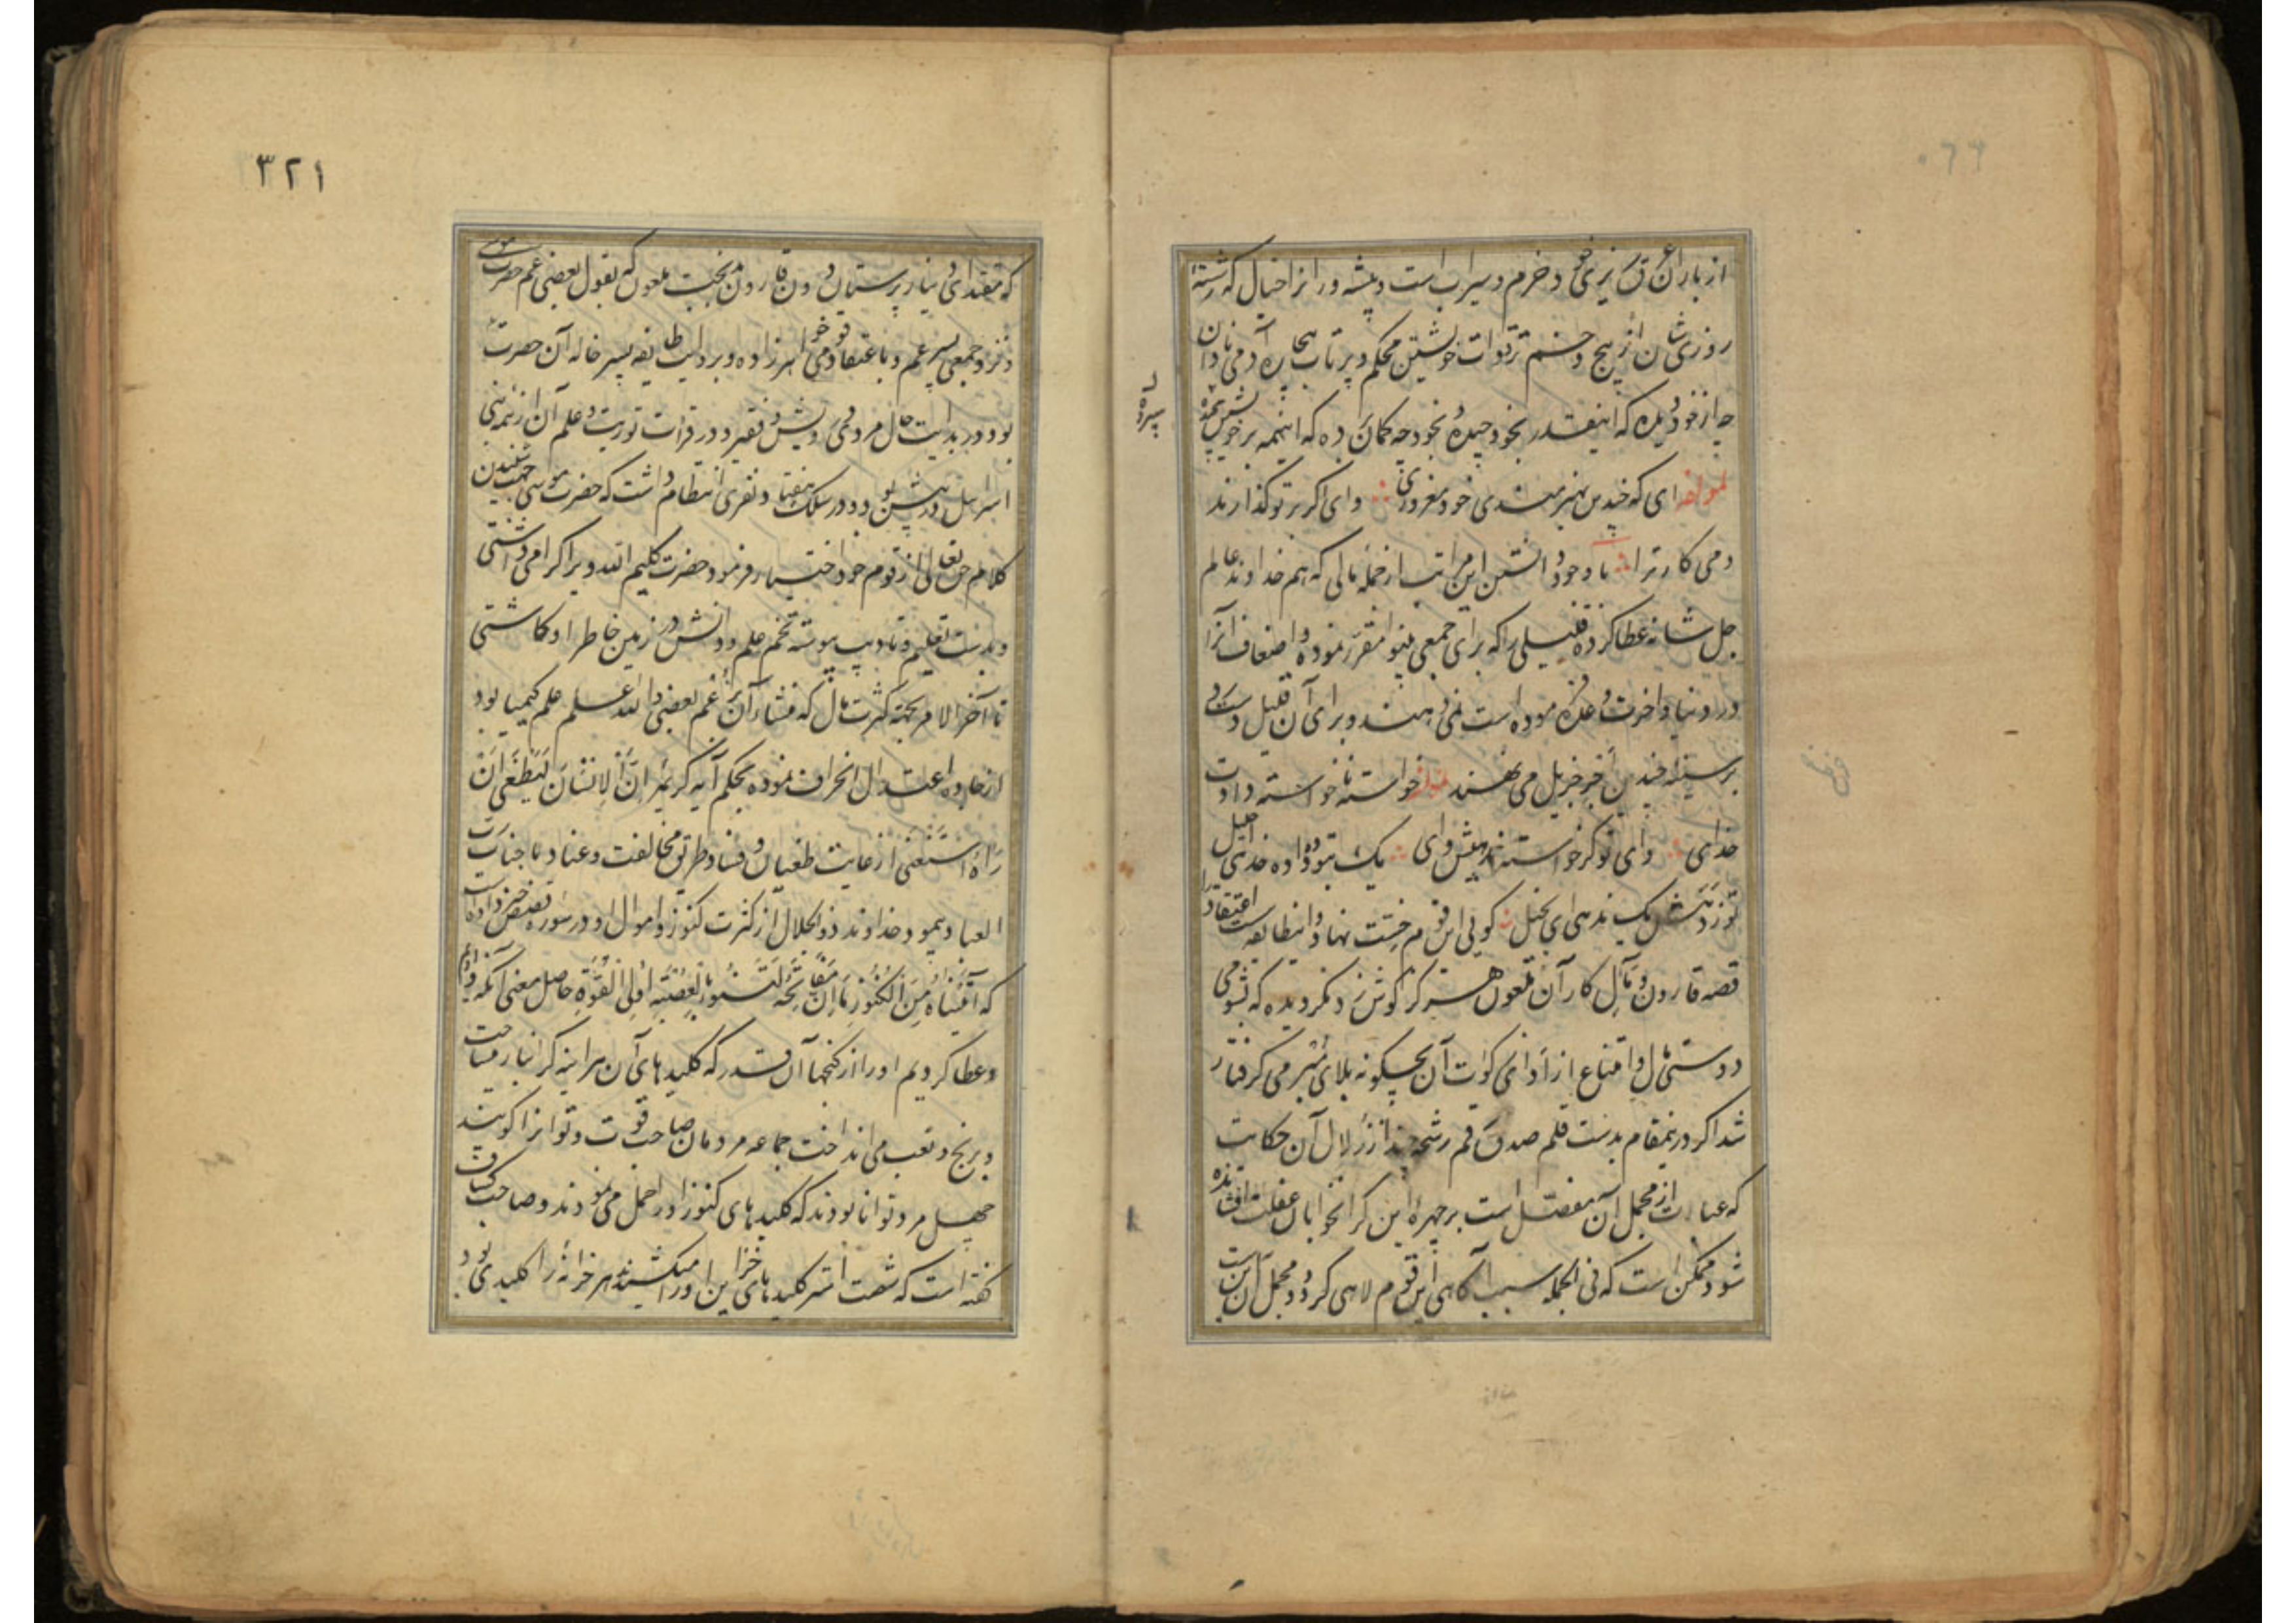 از باران عرق ریزی خود خرم و سیراب است و پیشه ور انرا خیال که رشتهٔ
روزی شان از پیچ و خم ترددات خویشتن محکم و پرتاب هیجان آدمی نادان
چه از خود دیده که اینقدر بخود چیده و بخود چه کمان ده که اینهمه بر خویش
لمولفه ای که چندین بهنرمندی خود مغروری وای اکر بر تو کذارند
دمی کار ترا با وجود دانستن این مراتب از جمله مالی که بهم خداوند عالم
جل شانه عطا کرده قلیلی را که برای جمعی بینوا مقرر نموده و اضعاف آنرا
در دنیا و اخرت وعده فرموده است نمی دهند و برای آن قلیل دست رد
بر سینه چندین اجر جزیل می نهند لمولفه خواسته ناخواسته دادت
خدای وای تو کر خواسته ندهیش وای یک بتو ده داده خدای جلیل
تو ز دهش یک ندهی ای بخیل کویی این قوم خست نهاد و اینطایفه سست اعتقاد را
قصه قارون و مآل کار آن ملعول هرکز کوش زد نکردیده که بشومی
دوستی مال و امتناع از ادای زکوات آن بچکونه بلای مبرمی کرفتار
شد اکر درینمقام بدست قلم صدق رقم رشحه چند از زلال آن حکایت
که عبارات از مجمل آن مفصل است بر چهرهٔ این کرانخوابان غفلت افشانده
شود ممکن است که فی الجمله سبب آکاهی این قوم لاهی کردد و مجمل آن اینست
سپرده
۳۲۱
که مقتدای دینار پرستان دون قارون بخیت ملعون که بقول بعضی عم حضرت موسی
و نزد جمعی پسر عم و باعتقاد قومی خواهرزاده و بروایت طایفه پسر خاله آن حضرت
بود در بدایت حال مردمی درویش و فقیر و در قرات توریت و علم آن از همه بنی
اسرائیل در پیش بود و در سلک هفتاد نفری انتظام داشت که حضرت موسی بجهت شنیدن
کلام حق تعالی از قوم خود اختیار فرمود حضرت کلیم الله ویرا کرامی داشتی
و بدست تعلیم و تادیب پیوسته تخم علم و دانش در زمین خاطر او کاشتی
تا آخر الامر بجهته کثرت مال که منشاء آن بزعم بعضی والله اعلم علم کیمیا بود
از جاده اعتدال انحراف نموده بحکم آیه کریمه اِنَّ الاِنْسَانَ لَيَطْغَى اَنْ
رَاهُ اسْتَغْنى از غایت طغیان و فساد طریق مخالفت و عناد با جناب رب
العباد پیمود خداوند ذوالجلال از کثرت کنوز و اموال او در سوره قصص خبر داده است
که آتَيْنَاهُ مِنَ الْكُنُوزِ مَا اِنَّ مَفَاتِحَهُ لَتَنُوءُ بِالْعُصْبَةِ اُولِى الْقُوَّةِ حاصل معنی آنکه دادیم
و عطا کردیم او را از کنجها آن قدر که کلیدهای آن هر اینه کرانبار میساخت
و برنج و تعب می انداخت جماعه مردمان صاحب قوت و توانرا کویند
چهل مرد توانا بودند که کلیدهای کنوز او را حمل می نمودند و صاحب کشاف
کفته است که شصت استر کلیدهای خزاین او را میکشیدند هر خزانه را کلیدی بود